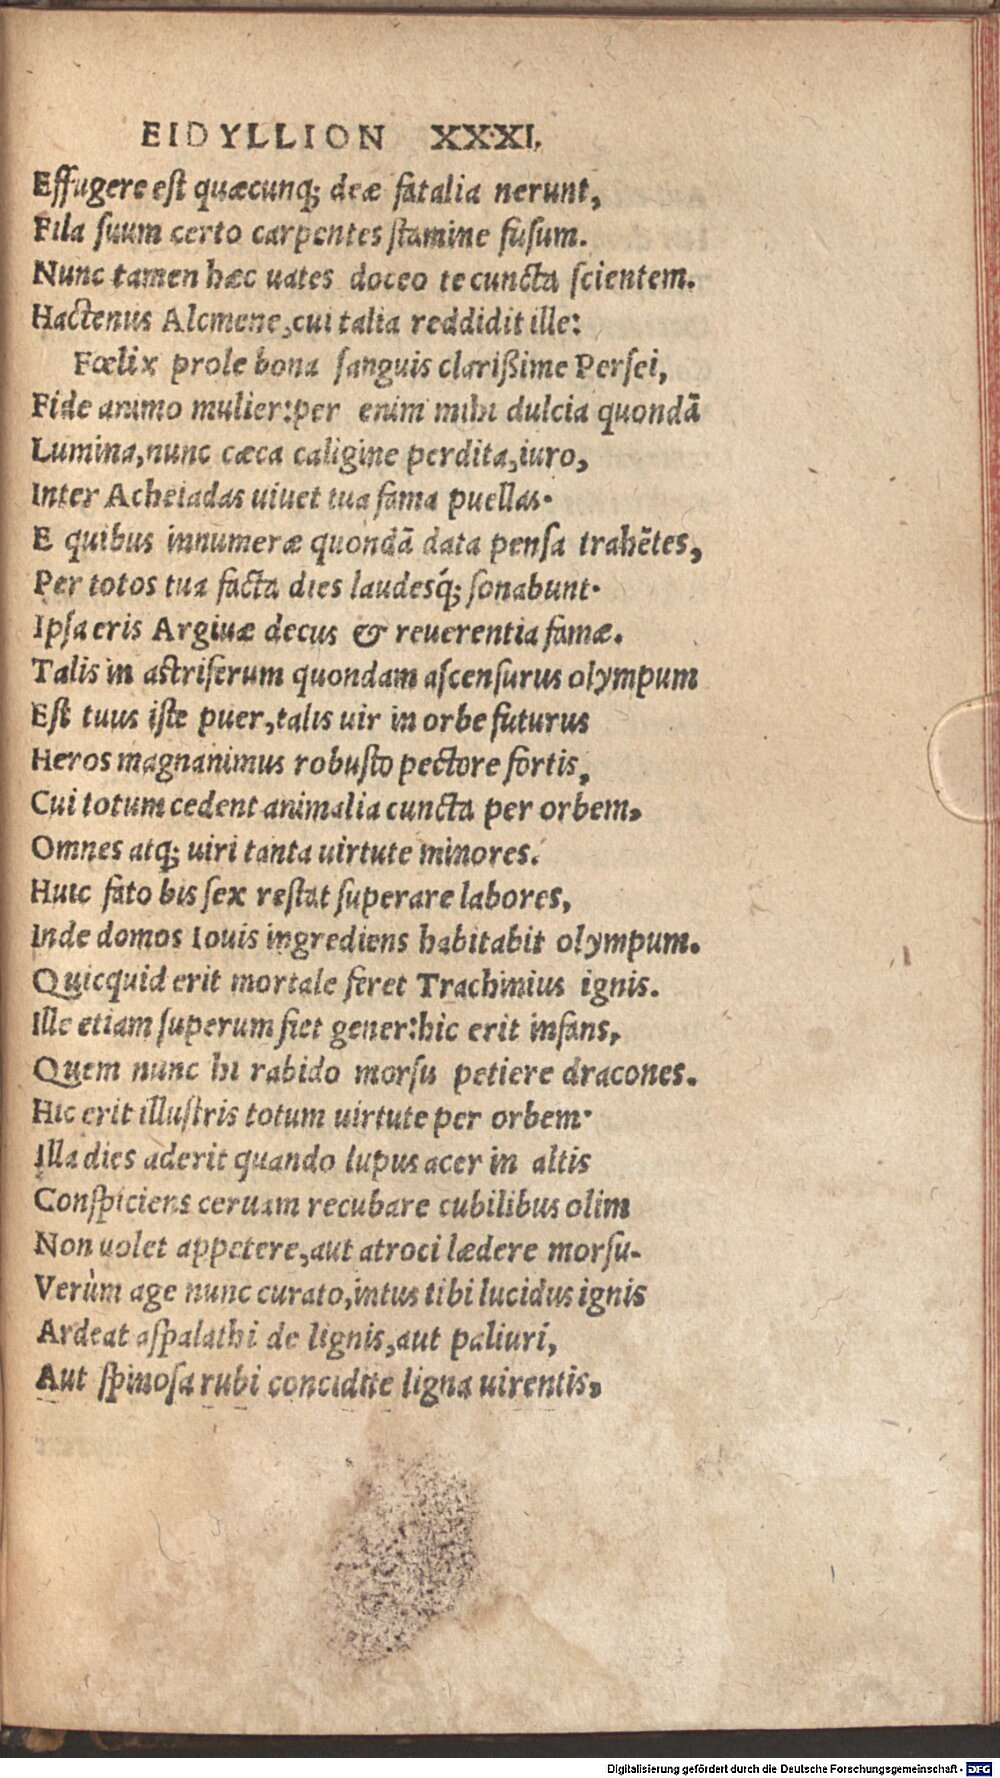 EIDYLLION XXXI.
Effugere est quæcunq; deæ fatalia nerunt,
Fila suum certo carpentes stamine fusum.
Nunc tamen hæc uates doceo te cuncta scientem.
Hactenus Alcmene, cui talia reddidit ille:
Fœlix prole bona sanguis clarißime Persei,
Fide animo mulier: per enim mihi dulcia quondā
Lumina, nunc cæca caligine perdita, iuro,
Inter Acheiadas uiuet tua fama puellas.
E quibus innumeræ quondā data pensa trahētes,
Per totos tua facta dies laudesq́; sonabunt.
Ipsa eris Argiuæ decus & reuerentia famæ.
Talis in astriferum quondam ascensurus olympum
Est tuus iste puer, talis uir in orbe futurus
Heros magnanimus robusto pectore fortis,
Cui totum cedent animalia cuncta per orbem,
Omnes atq; uiri tanta uirtute minores.
Huic fato bis sex restat superare labores,
Inde domos Iouis ingrediens habitabit olympum.
Quicquid erit mortale feret Trachinius ignis.
Ille etiam superum fiet gener: hic erit infans,
Quem nunc hi rabido morsu petiere dracones.
Hic erit illustris totum uirtute per orbem.
Illa dies aderit quando lupus acer in altis
Conspiciens ceruam recubare cubilibus olim
Non uolet appetere, aut atroci lædere morsu.
Verùm age nunc curato, intus tibi lucidus ignis
Ardeat aspalathi de lignis, aut paliuri,
Aut spinosa rubi concidite ligna uirentis,
Digitalisierung gefördert durch die Deutsche Forschungsgemeinschaft - DFG